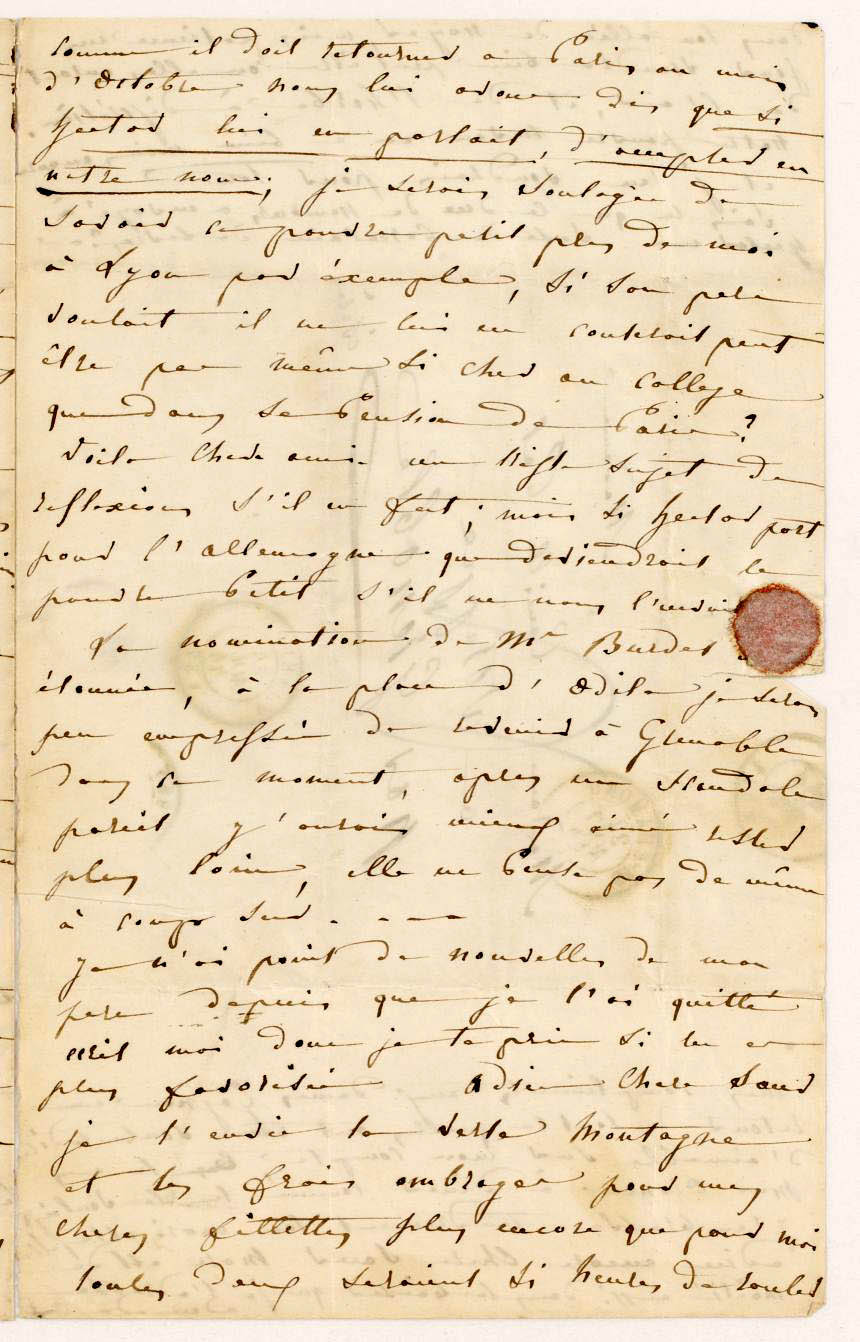 comme il doit retourner a Paris au mois
d'Octobre nous lui avons dis que si
hector lui en parlait, d'accepter en
notre nom; je serois soulagée de
savoir ce pauvre petit pres de moi
à Lyon par éxemple, si son pere
voulait il ne lui en couteroit peut
être pas même si cher au college
que dans sa Pension de Paris?
Voila chere amie un triste sujet de
reflexions s'il en fut; mais si hector part
pour l'allemagne que deviendroit le
pauvre Petit s'il ne nous l'envoie
La nomination de Mr Burdet
étonnée, à la place d'Odile je serois
peu empressée de revenir à Grenoble
dans ce moment, apres un scandale
pareil j'aurois mieux aimé rester
plus loin, elle ne Pense pas de même
à coup sur. - - -
je n'ai point de nouvelles de mon
pere depuis que je l'ai quitté
ecris moi donc je te prie si tu es
plus favorisée Adieu Chere Sœur
je t'envie ta verte Montagne
et tes frais ombrages pour mes
cheres fillettes plus encore que pour moi
toutes deux seraient si heureuses de rouler